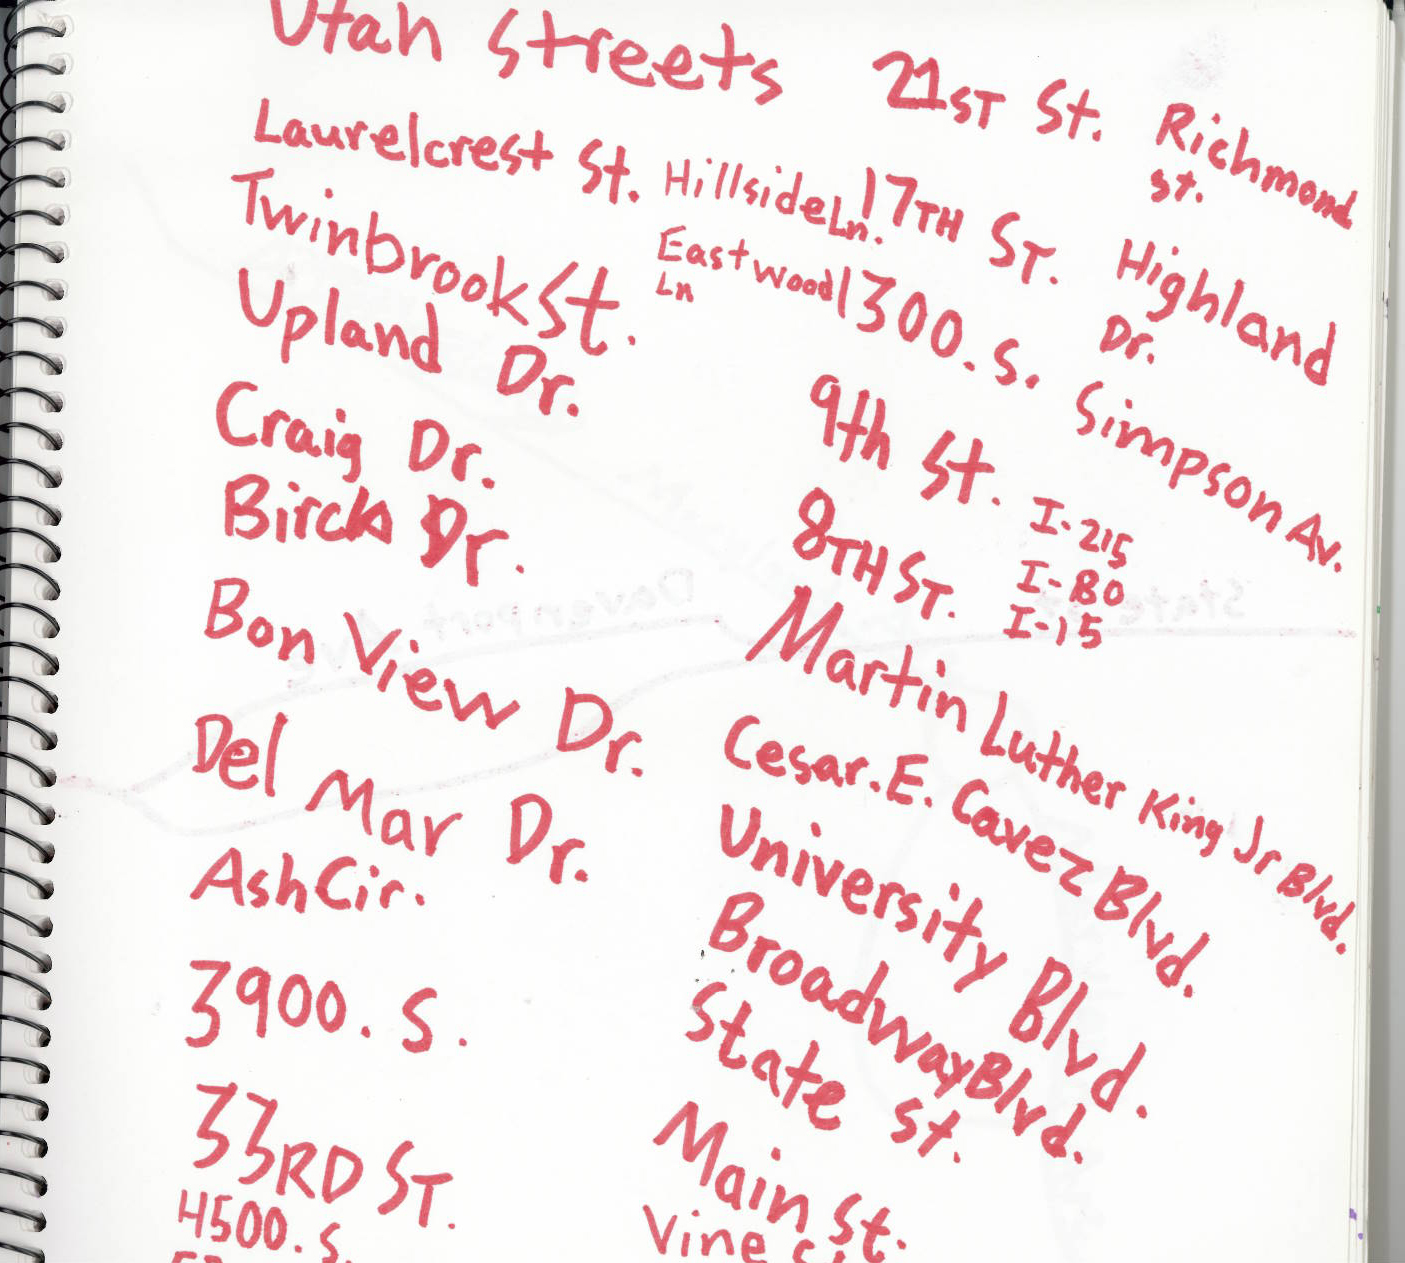 Utah Streets
Laurelcrest St.
Twinbrook St.
Upland Dr.
Craig Dr.
Birch Dr.
Bon View Dr.
Del Mar Dr.
Ash Cir.
3900. S.
33RD ST.
4500. S.
Hillside Ln.
Eastwood
Ln
21ST St.
17TH ST.
1300. S.
9th St.
8TH ST.
Martin Luther King Jr Blvd.
Cesar. E. Cavez Blvd.
University Blvd.
Broadway Blvd.
State St.
Main St.
Vine
Richmond
St.
Highland
Dr.
Simpson Av.
I-215
I-80
I-15
State
Davenport Ave